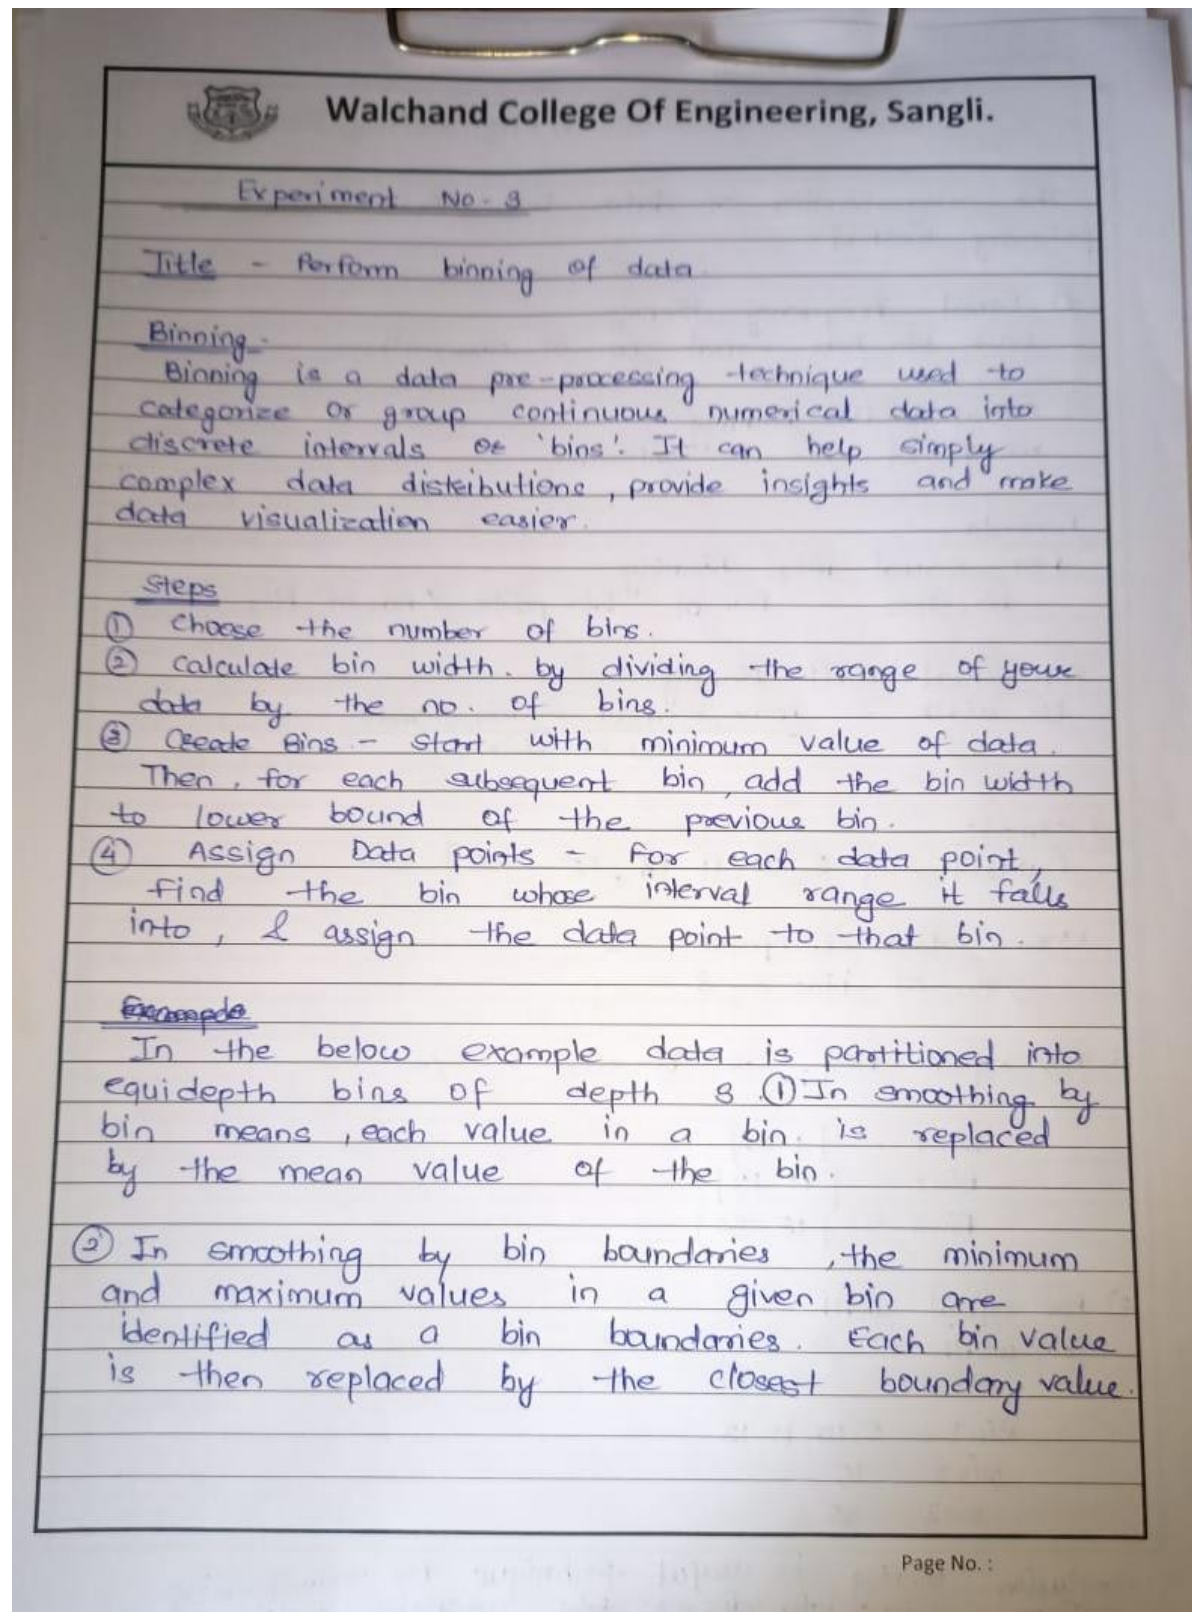 Walchand College Of Engineering, Sangli.
Experiment No. 3
Title - Perform binning of data
Binning -
Binning is a data pre-processing technique used to
categorize or group continuous numerical data into
discrete intervals or 'bins'. It can help simply
complex data distributions, provide insights and make
data visualization easier.
Steps
① Choose the number of bins.
② Calculate bin width. by dividing the range of your
data by the no. of bins.
③ Create Bins - Start with minimum value of data.
Then, for each subsequent bin, add the bin width
to lower bound of the previous bin.
④ Assign Data points - For each data point,
find the bin whose interval range it falls
into, & assign the data point to that bin.
Example
In the below example data is partitioned into
equidepth bins of depth 3. ① In smoothing by
bin means, each value in a bin. is replaced
by the mean value of the .. bin.
② In smoothing by bin boundaries, the minimum
and maximum values in a given bin are
identified as a bin boundaries. Each bin value
is then replaced by the closest boundary value.
Page No. :